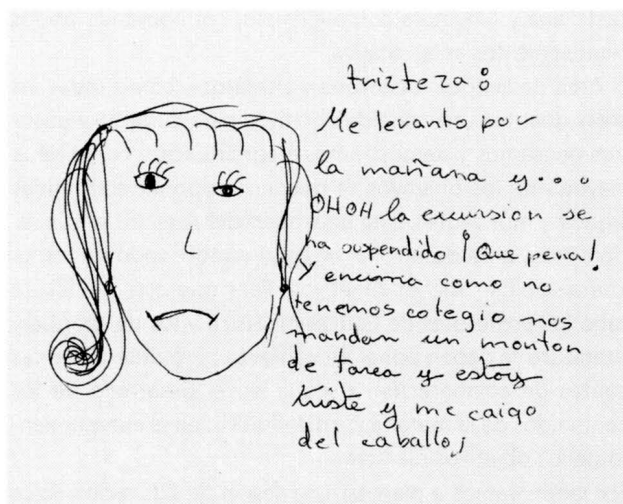 trizteza:
Me levanto por
la mañana y...
OHOH la excursion se
ha suspendido ¡Que pena!
Y encima como no
tenemos colegio nos
mandan un monton
de tarea y estoy
triste y me caigo
del caballo¡